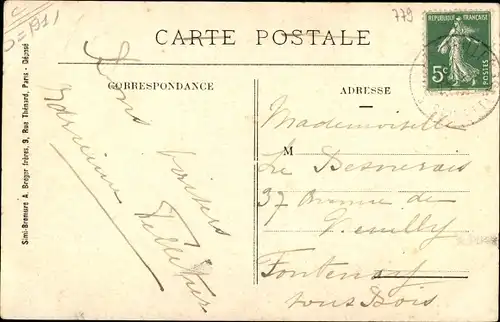 D = 1911
779
CARTE POSTALE
REPUBLIQUE FRANÇAISE
5c
POSTES
CORRESPONDANCE
ADRESSE
Simi-Bromure A. Breger frères, 9, Rue Thénard, Paris - Déposé
Bons
baisers
Pelletier
Mademoiselle
M
Le Desnerais
37 Avenue de
Neuilly
Fontenay
sous Bois